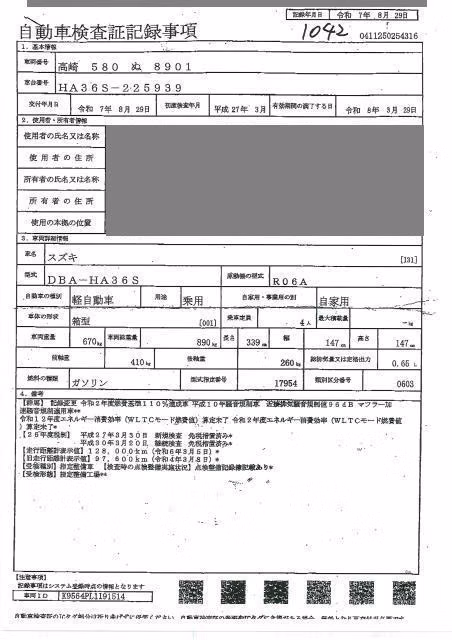 記録年月日 令和 7年 8月 29日
自動車検査証記録事項
1042
0411250254316
1. 基本情報
車両番号 高崎 580 ぬ 8901
車台番号 HA36S-225939
交付年月日 令和 7年 8月 29日 初度検査年月 平成 27年 3月 有効期間の満了する日 令和 8年 3月 29日
2. 使用者・所有者情報
使用者の氏名又は名称
使用者の住所
所有者の氏名又は名称
所有者の住所
使用の本拠の位置
3. 車両詳細情報
車名 スズキ [131]
型式 DBA-HA36S 原動機の型式 R06A
自動車の種別 軽自動車 用途 乗用 自家用・事業用の別 自家用
車体の形状 箱型 [001] 乗車定員 4人 最大積載量 -kg
車両重量 670kg 車両総重量 890kg 長さ 339cm 幅 147cm 高さ 147cm
前軸重 410kg 後軸重 260kg 総排気量又は定格出力 0.65 L
燃料の種類 ガソリン 型式指定番号 17954 類別区分番号 0603
4. 備考
【群馬】 記録変更 令和2年度燃費基準110%達成車 平成10年騒音規制車 近接排気騒音規制値96dB マフラー加
速騒音規制適用車**
令和12年度エネルギー消費効率(WLTCモード燃費値)算定未了 令和2年度エネルギー消費効率(WLTCモード燃費値
)算定未了*
【26年度税制】 平成27年3月30日 新規検査 免税措置済み*
平成30年3月20日 継続検査 免税措置済み*
【走行距離計表示値】128,000km(令和6年3月5日)*
【旧走行距離計表示値】97,600km(令和4年3月8日)*
【受検種別】指定整備車 【検査時の点検整備実施状況】点検整備記録簿記載あり*
【受検形態】指定整備工場**
【注意事項】
記録事項はシステム登録時点の情報となります
車両ID K9564PL1191514